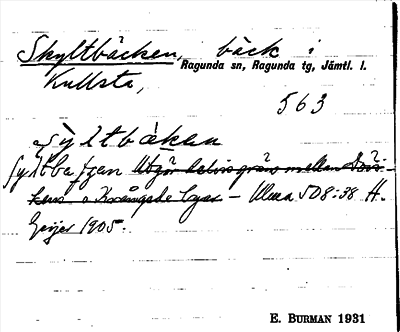 Skyltbäcken, bäck i
Ragunda sn, Ragunda tg, Jämtl. l.
Kullsta,
563
syltbäken
syltbetjen Utgör delvis gräns mellan Döv-
kens o Krångede byar - Ulma 508:38 H.
Geijer 1905.
E. BURMAN 1931